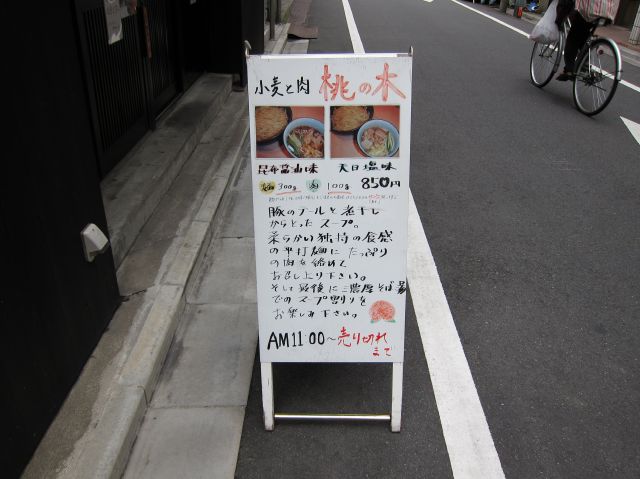 小麦と肉 桃の木
昆布醤油味 天日塩味
麺300g 肉100g 850円
豚のゲールを煮干し
からとったスープ。
柔らかい独特の食感
の平打麺にたっぷり
の肉を絡めて
お召し上り下さい。
そして最後に三農厚そば湯
でのスープ割りを
お楽しみ下さい。
AM11:00〜売り切れ
まで